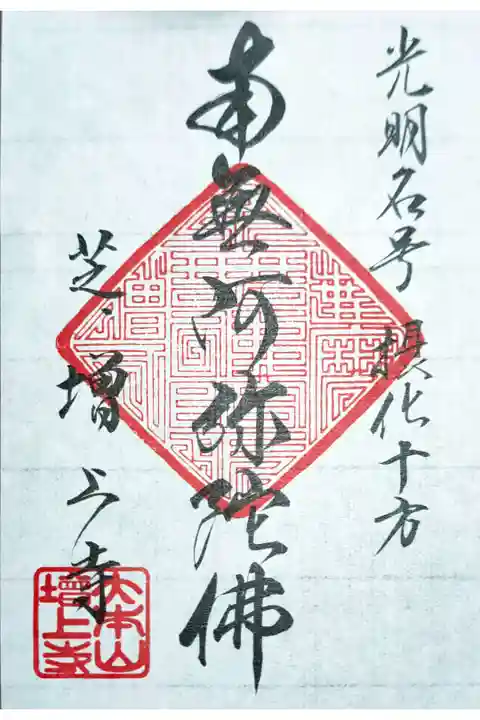 光明名号 摂化十方
南無阿弥陀佛
芝・増上寺
大本山
增上寺